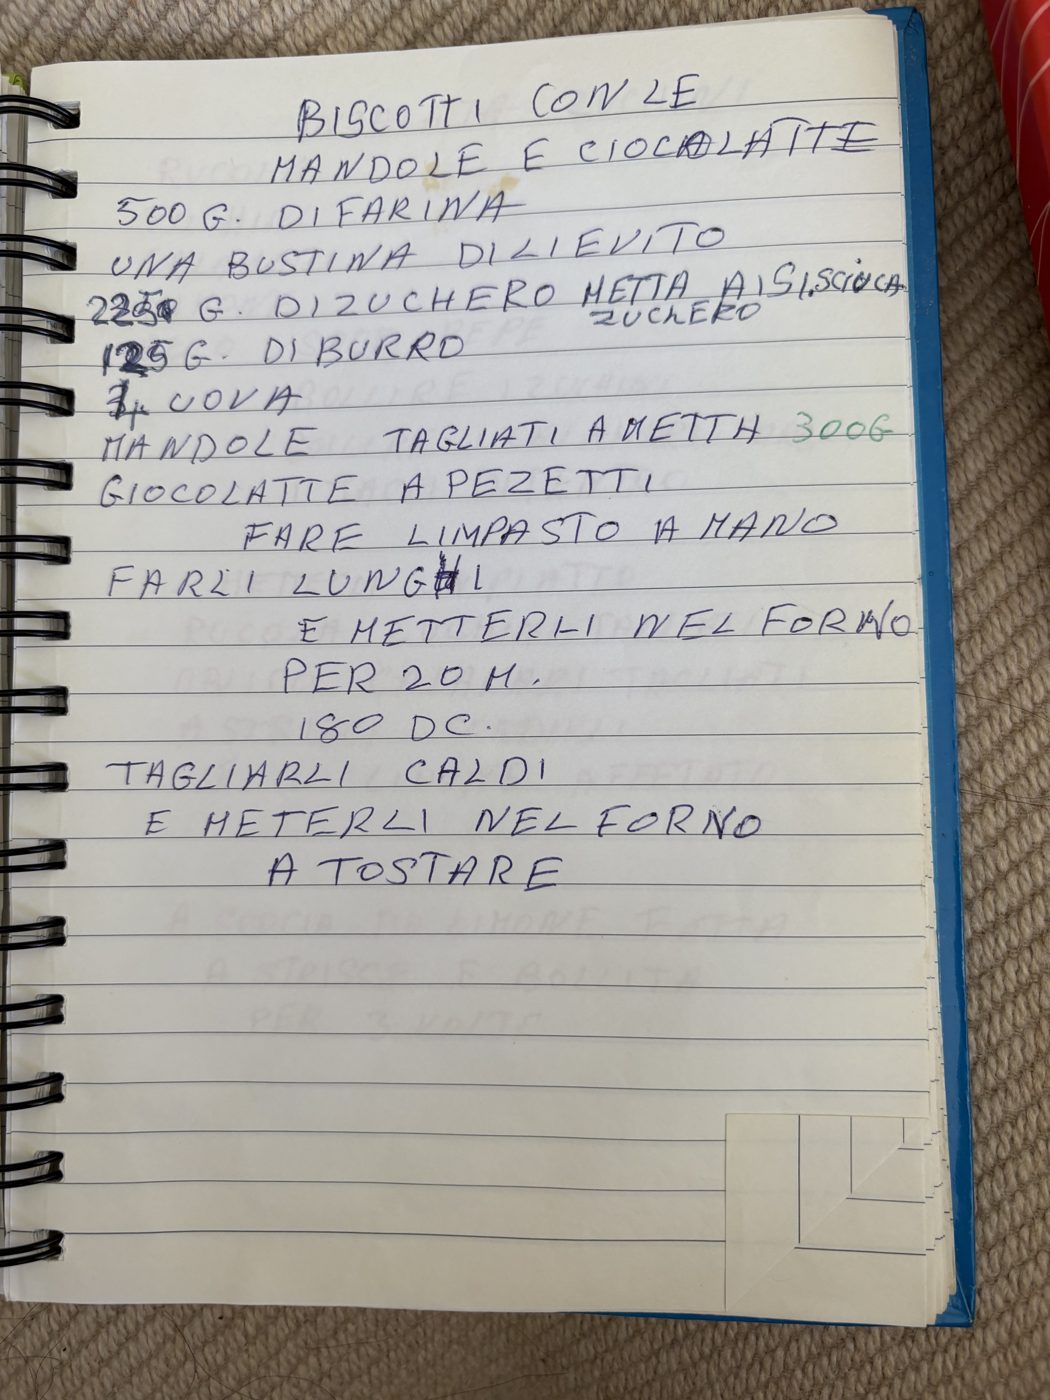 BISCOTTI CON LE
MANDOLE E CIOCOLATTE
500 G. DI FARINA
UNA BUSTINA DI LIEVITO
G. DI ZUCHERO METTA
ZUCHERO
125 G. DI BURRO
4 UOVA
MANDOLE TAGLIATI A METTH 300G
GIOCOLATTE A PEZETTI
FARE LIMPASTO A MANO
FARLI LUNGHI
E METTERLI NEL FORNO
PER 20 M.
180 DC.
TAGLIARLI CALDI
E METERLI NEL FORNO
A TOSTARE